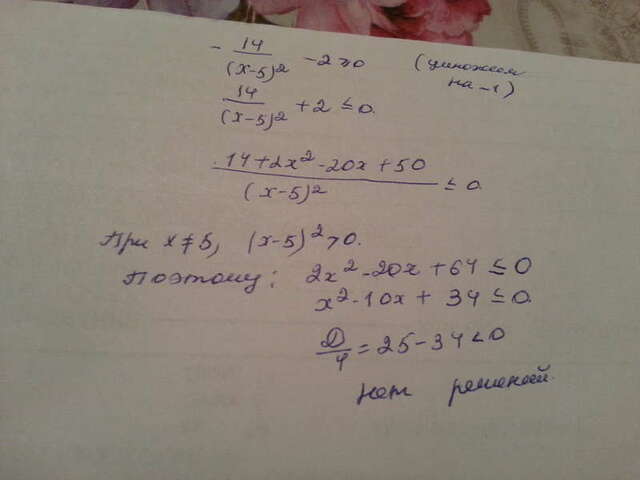 - 14/(x-5)² - 2 ≥ 0 (умножаем
на -1)
14/(x-5)² + 2 ≤ 0.
14+2x²-20x+50/(x-5)² ≤ 0
При x≠5, (x-5)²>0.
Поэтому: 2x²-20x+64 ≤ 0
x²-10x+34 ≤ 0.
D/4 = 25-34<0
нет решений.